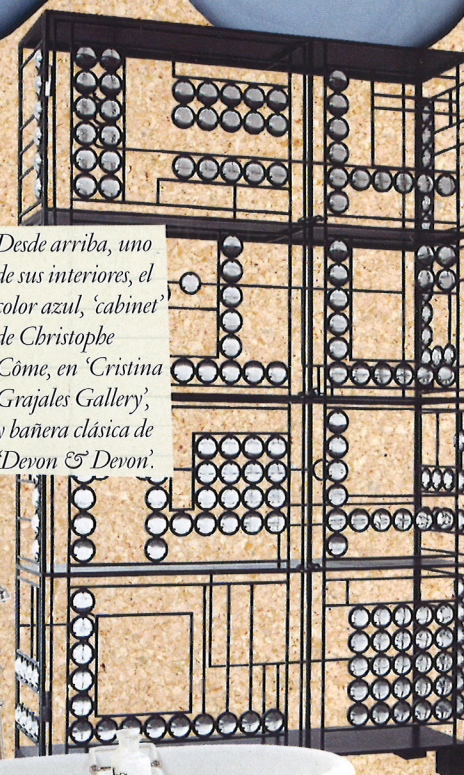 Desde arriba, uno
de sus interiores, el
color azul, ‘cabinet’
de Christophe
Côme, en ‘Cristina
Grajales Gallery’,
y bañera clásica de
‘Devon & Devon’.